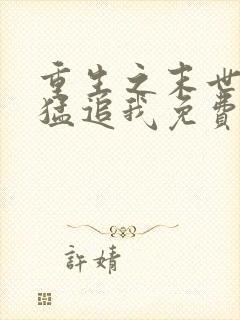 重生之末世
猛追我免費
許婧